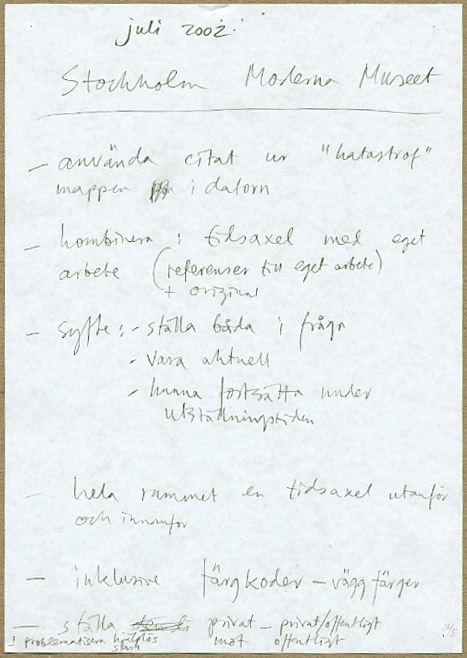 juli 2002.
Stockholm Moderna Museet
– använda citat ur "katastrof"
mappen i datorn
– kombinera : tidsaxel med eget
arbete (referenser till eget arbete)
+ original
– syfte : - ställa båda i fråga
- vara aktuell
- kunna fortsätta under
utställningstiden
– hela rummet en tidsaxel utanför
och innanför
– inklusive färgkoder – väggfärger
– ställa privat – privat/offentligt
! problematisera mot offentligt